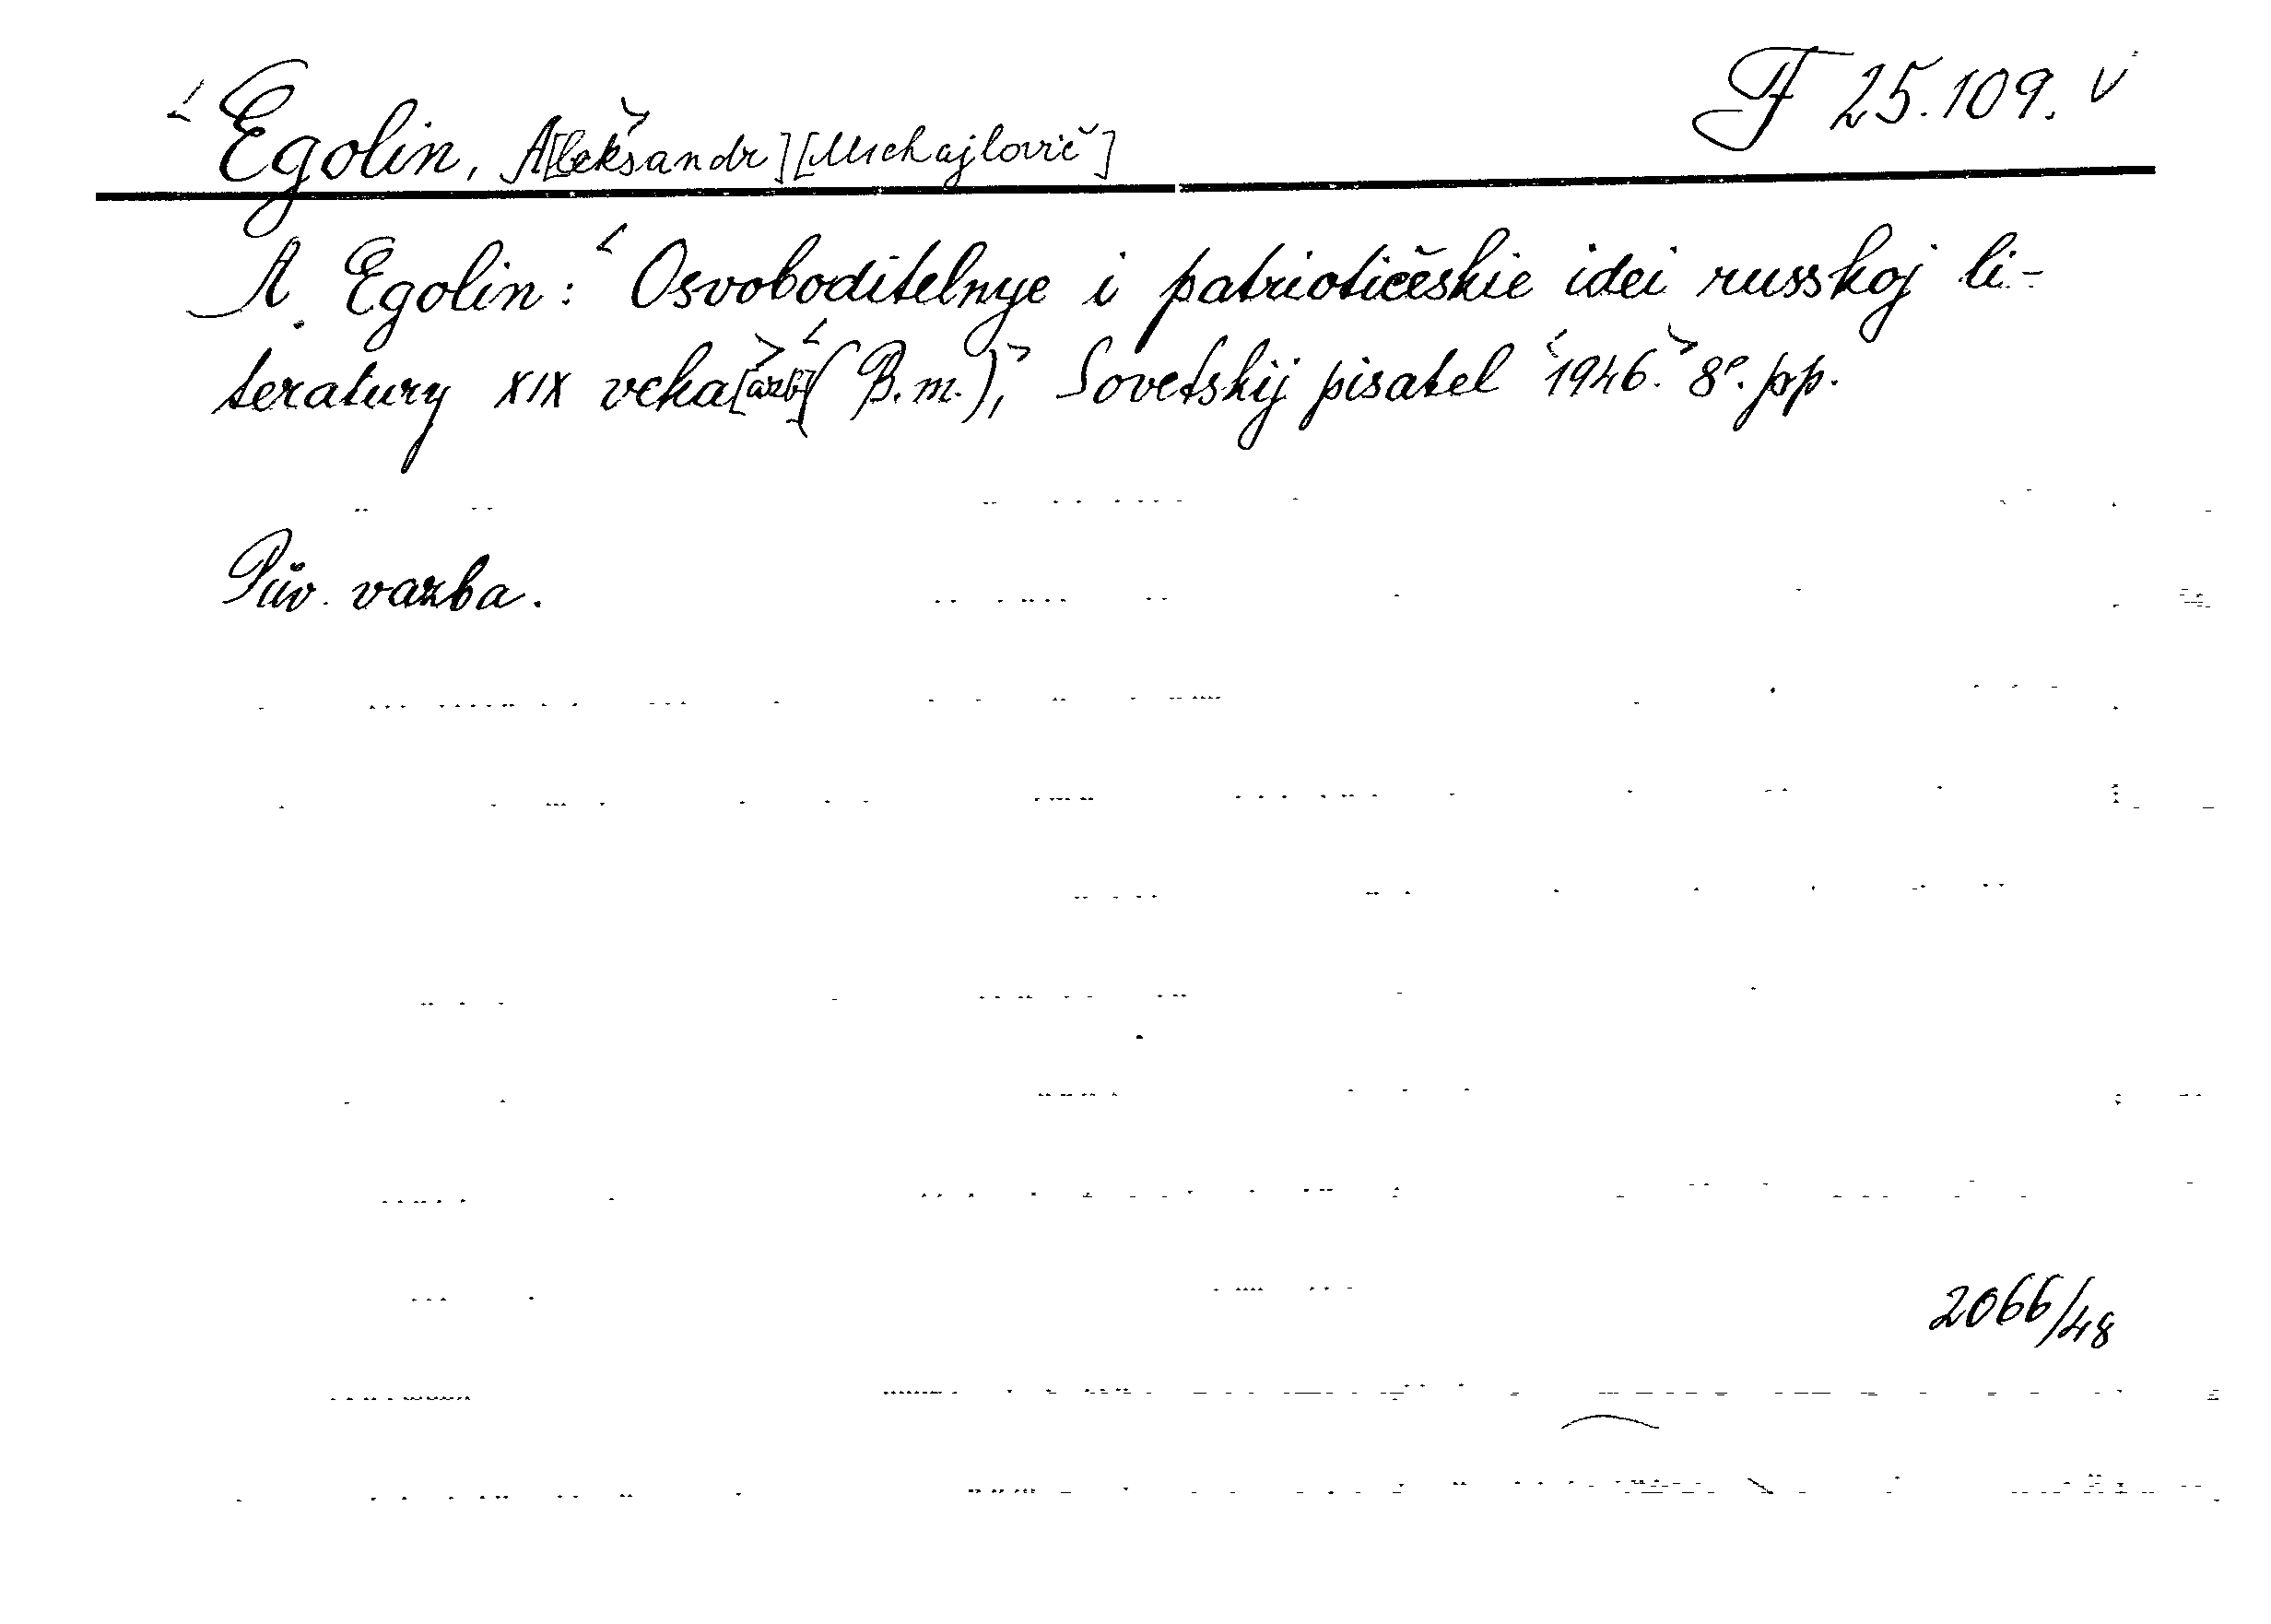 Egolin, A[leksandr] [Michajlovič]
F 25.109.
A. Egolin: Osvoboditelnye i patriotičeskie idei russkoj li-
teratury XIX veka [azb] (B. m.), Sovetskij pisatel 1946. 8°. pp.
Pův. vazba.
2066/48